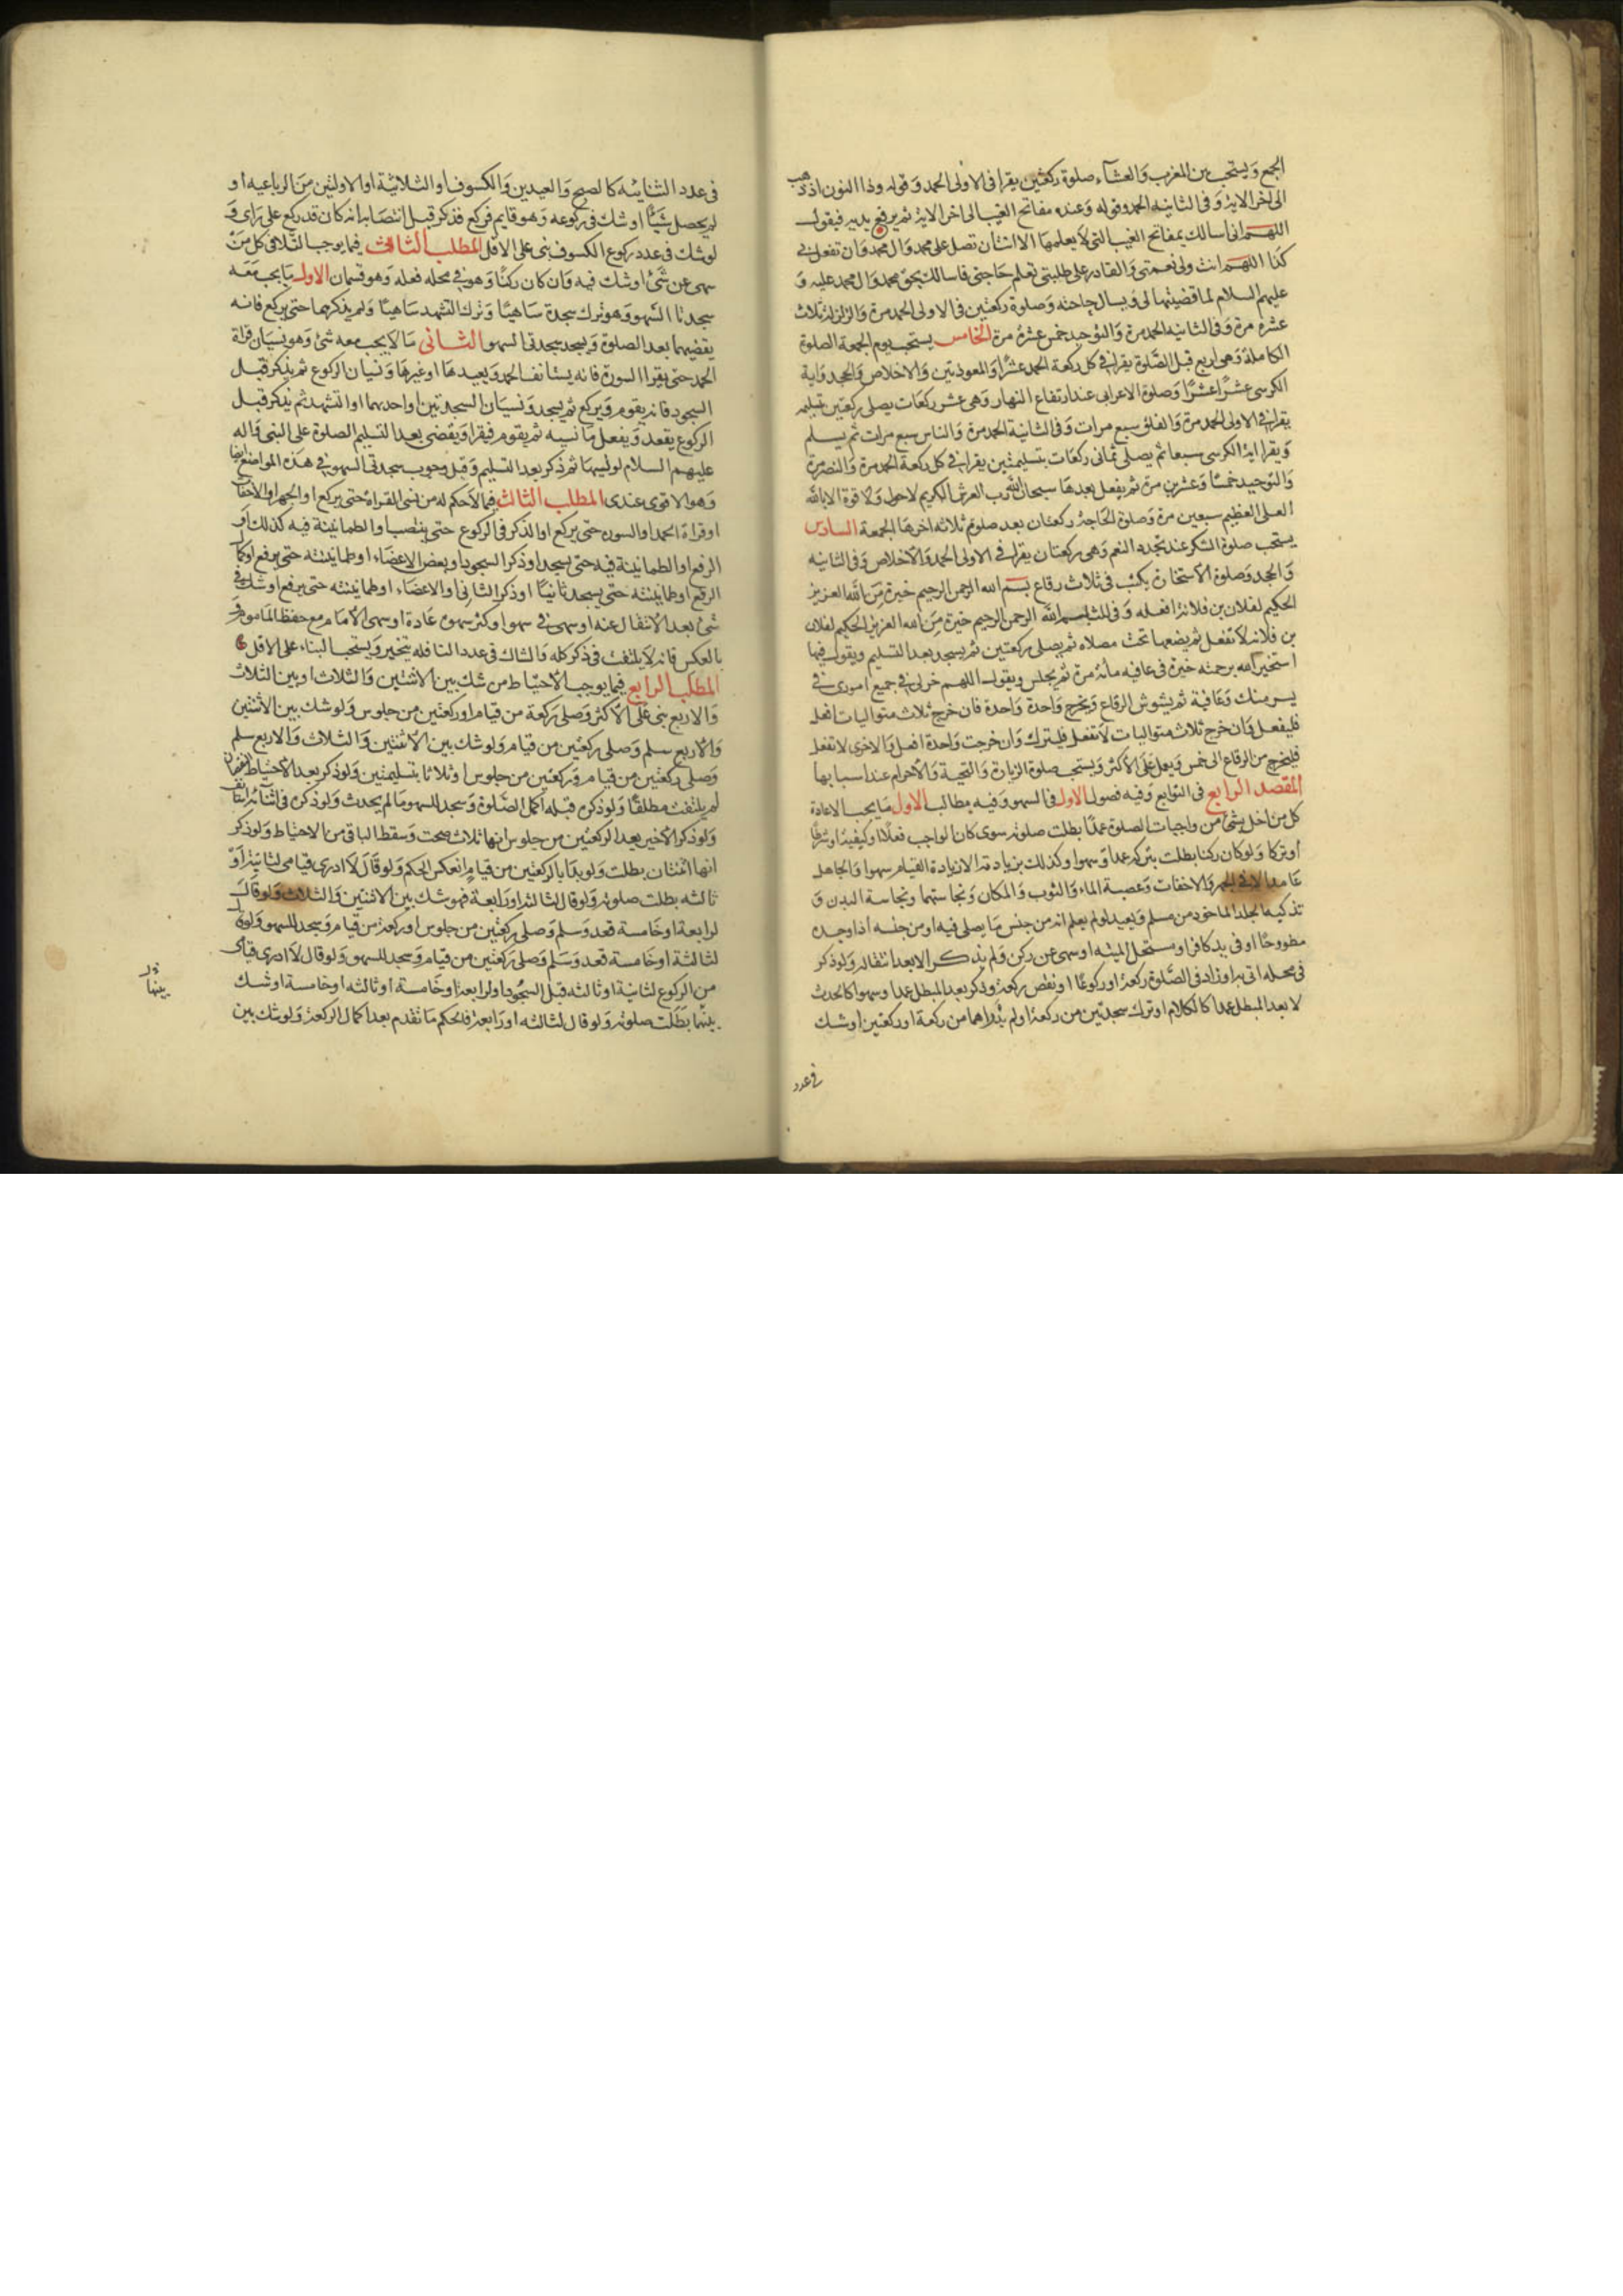 الجمع وَيستحب بين المغرب وَالعشاء صلوة ركعتين يقرا فى الاولى الحمد وَقوله وذا النون اذ ذهب
الى اخر الاية وَفى الثانيه الحمد وقوله وَعنده مفاتح الغيب الى اخر الاية ثم يرفع يديه فيقول
اللهم انى اسالك بمفاتح الغيب التى لا يعلمها الا انت ان تصلى على محمد وَال محمد وَان تفعل بى
كذا اللهم انت ولى نعمتى وَالقادر على طلبتى تعلم حاجتى فاسالك بحق محمد وَال محمد عليه وَ
عليهم السلام لما قضيتها لى وَيسال حاجته وَصلوة ركعتين فى الاولى الحمد مرة وَالزلزلة ثلاث
عشرة مرة وَفى الثانيه الحمد مرة وَالتوحيد خمس عشرة مرة الخامس يستحب يوم الجمعة الصلوة
الكاملة وَهى اربع قبل الصَّلوة يقرا فى كل ركعة الحمد عشرًا وَالمعوذتين وَالاخلاص وَالجحد وَاية
الكرسى عشرًا عشرًا وَصلوة الاعرابى عند ارتفاع النهار وَهى عشر ركعَات يصلى ركعتين بتسليمه
يقرا فى الاولى الحمد مرة وَالفلق سبع مرات وَفى الثانية الحمد مرة وَالناس سبع مرات ثم يسلم
وَيقرا اية الكرسى سبعا ثم يصلى ثمانى ركعَات بتسليمتين يقرا فى كل ركعة الحمد مرة وَالنصر مرة
وَالتوحيد خمسًا وَعشرين مرة ثم يفعل بعدهَا سبحان الله رب العرش الكريم لا حول وَلا قوة الا بالله
العلى العظيم سبعين مرة وَصلوة الحَاجة ركعتان بعد صلوم ثلاثه اخرهَا الجمعة السادس
يستحب صلوة الشكر عند تجدد النعم وَهى ركعتان يقرا فى الاولى الحمد وَالاخلاص وَفى الثانيه
وَالجحد وَصلوة الاستخان يكتب فى ثلاث رقاع بسم الله الرحمن الرحيم خيرة مِنَ الله العزيز
الحكيم لفلان بن فلانة افعله وَفى ثلث بسم الله الرحمن الرحيم خيرة مِنَ الله العزيز الحكيم لفلان
بن فلانه لا تفعل ثم يضعها تحت مصلاه ثم يصلى ركعتين ثم يسجد بعد التسليم ويقول فيها
استخير الله برحمته خيرة فى عافيه مائة مرة ثم يجلس ويقول اللهم خر لى فى جميع امورى فى
يسر منك وَعَافية ثم يشوش الرقاع وَيخرج وَاحدة وَاحدة فان خرج ثلاث متواليات افعل
فليفعل وَان خرج ثلاث متواليات لا تفعل فليترك وَان خرجت وَاحدة افعل وَالاخرى لا تفعل
فليخرج من الرقاع الى خمس وَيعمل عَلَى الاكثر وَيستحب صلوة الزيارة وَالتحية وَالاحرام عند اسبابها
المقصد الرابع فى التوابع وَفيه فصول الاول فى السهو وَفيه مطالب الاول مَا يجب الاعادة
كل من اخل بشئ من واجبات الصلوة عمدًا بطلت صلوته سوى كان الواجب فعلًا او كيفية او شرطًا
او تركا وَلو كان ركنا بطلت بتركه عمدا وَسهوا وكذلك بزيادته الا زيادة القيام سهوا وَالجاهل
عَامد الا فى الجهر وَالاخفات وَغصبية الماء وَالثوب وَالمكان وَنجاستهما ونجاسة البدن وَ
تذكيه الجلد الماخوذ من مسلم وَيعيد لو لم يعلم انه من جنس مَا يصلى فيه او من جنسه اذا وجده
مطروحًا او فى يد كافر او مستحل الميته او سهى عن ركن وَلم يذكر الا بعد انتقاله وَلو ذكر
فى محله اتى به او زاد فى الصَّلوة ركعة او ركوعًا او نقص ركعة وذكر بعد المبطل عمدا وسهوا كالحدث
لا بعد المبطل عمدا كالكلام او ترك سجدتين من ركعة او لم يدر اهما من ركعة او ركعتين او شك
فى عدد
فى عدد الثنائيه كالصبح وَالعيدين وَالكسوف او الثلاثيّة او الاولتين مِنَ الرباعيه او
لم يحصل شيئًا او شك فى ركوعه وَهو قايم فركع فذكر قبل انتصابه انه كان قد ركع على رَاى وَ
لو شك فى عدد ركوع الكسوف بنى على الاقل المطلب الثانى فيما يوجب التلافى كل مَنْ
سهى عن شئ او شك فيه وَان كان ركنًا وَهو فى محله فعله وَهو قسمان الاول مَا يجب مَعَه
سجدتا السّهو وَهو ترك سجدة سَاهيًا وَترك التشهد سَاهيًا وَلم يذكرهما حتى يركع فانه
يقضيهما بعد الصلوة وَيسجد سجدتى السهو الثانى مَا لا يجب معه شئ وَهو نسيَان قراة
الحمد حتى يقرا السورة فانه يستانف الحمد وَيعيدهَا او غيرهَا وَنسيان الركوع ثم يذكر قبل
السجود فانه يقوم وَيركع ثم يسجد وَنسيَان السجدتين او احديهما او التشهد ثم يذكر قبل
الركوع يقعد وَيفعل مَا نسيه ثم يقوم فيقرا وَيقضى بعد التسليم الصلوة على النبى وَاله
عليهم السلام لو نسيهَا ثم ذكر بعد التسليم وَقيل وجوب سجدتى السهو فى هذه المواضع ايضا
وَهو الاقوى عندى المطلب الثالث فيما لا حكم له من نسى القراءة حتى يركع او الجهر او الاخفات
او قراة الحمد او السوره حتى يركع او الذكر فى الركوع حتى ينتصب او الطمانينة فيه كذلك او
الرفع او الطمانينة فيه حتى يسجد او ذكر السجود او بعض الاعضَاء او طمانينته حتى يرفع او اكمال
الرفع او طمانينته حتى يسجد ثانيًا او ذكر الثانى او الاعضَاء او طمانينته حتى يرفع او شك فى
شئ بعد الانتقال عنه او سهى فى سهو او كثر سهوه عَادة او سهى الامَام مع حفظ الماموم وَ
بالعكس فانه لا يلتفت فى ذكر كله وَالشاك فى عدد النافله يتخير وَيستحب البناء على الاقل
المطلب الرابع فيما يوجب الاحتيَاط من شك بين الاثنتين وَالثلاث او بين الثلاث
وَالاربع بنى عَلَى الاكثر وَصلى ركعة من قيام او ركعتين من جلوس وَلو شك بين الاثنتين
وَالاربع سلم وَصلى ركعتين من قيام وَلو شك بين الاثنتين وَالثلاث وَالاربع سلم
وَصلى ركعتين من قيام وَركعتين من جلوس او ثلاثا بتسليمتين وَلو ذكر بعد الاحتياط النقصان
لم يلتفت مطلقًا وَلو ذكره قبله اكمل الصَّلوة وَسجد للسهو مَا لم يحدث وَلو ذكره فى اثنائه
وَلو ذكر الاخير بعد الركعتين من جلوس انها ثلاث صحت وَسقط الباقى من الاحتياط وَلو ذكر
انها اثنتان بطلت وَلو بدَا بالركعتين من قيام انعكس الحكم وَلو قَالَ لا ادرى قيامى لثانية اوْ
ثالثه بطلت صلوته وَلو قال لثالثة او رَابعة فهو شك بين الاثنتين وَالثلاث وَلو قال
لرابعة او خَامسة قعد وَسلم وَصلى ركعتين من جلوس او ركعة من قيام وَسجد للسهو وَلو قال
لثالثة او خَامسة قعد وَسَلم وَصلى ركعتين من قيام وَسجد للسهو وَلو قال لا ادرى قيامى
من الركوع لثانية او ثالثه قبل السجُود او لرابعة او خَامسة او ثالثه او خامسة او شك
بينهَما بَطَلَت صلوته وَلو قال لثالثه او رَابعة فالحكم مَا تقدم بعد اكمال الركعة وَلو شك بين
بينهما